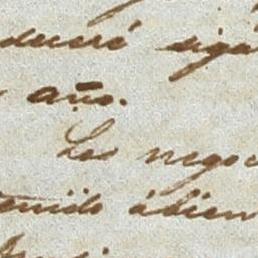 duceré siga
año.
Los negoc
tenido ádien